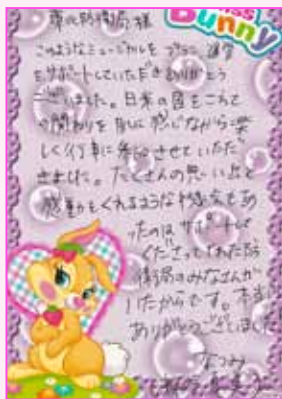 東北防衛局様
Miss Bunny
このようなミュージカルをプラン、運営
をサポートしていただきありがとう
ございました。日米の国をこえて
の関わりを肌に感じながら楽
しく行事に参加させていただ
きました。たくさんの思い出と
感動をくれるような機会をあ
ったのは サポートして
くださってくれた防
衛局のみなさんが
いたからです。本当に
ありがとうございました
なつみ